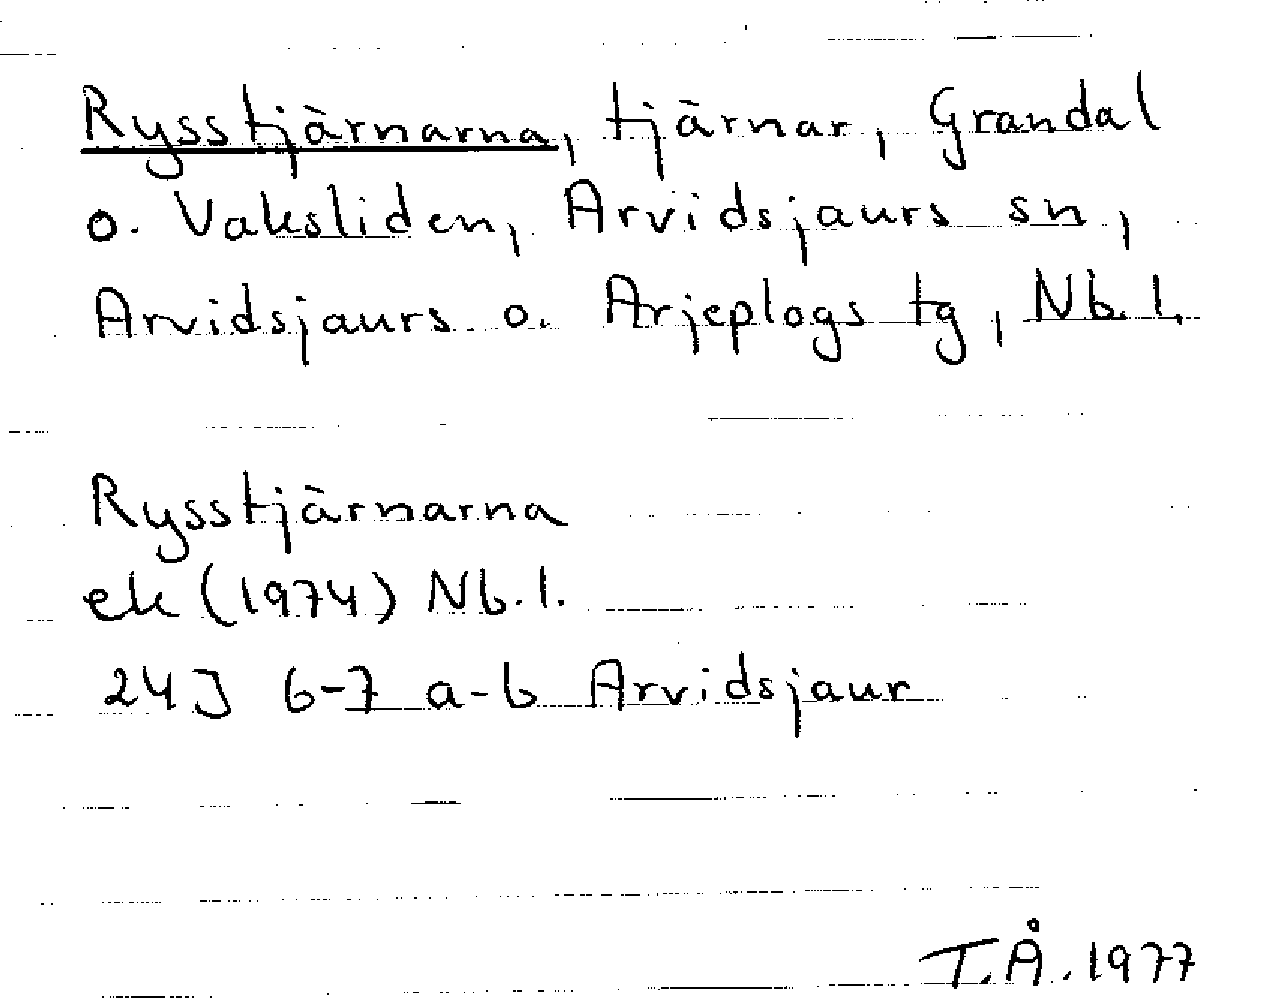 Rysstjärnarna, tjärnar, Grandal
o. Vaksliden, Arvidsjaurs sn,
Arvidsjaurs o. Arjeplogs tg, Nb. l.
Rysstjärnarna
ek (1974) Nb. l.
24J 6-7 a-b Arvidsjaur
T.Å. 1977